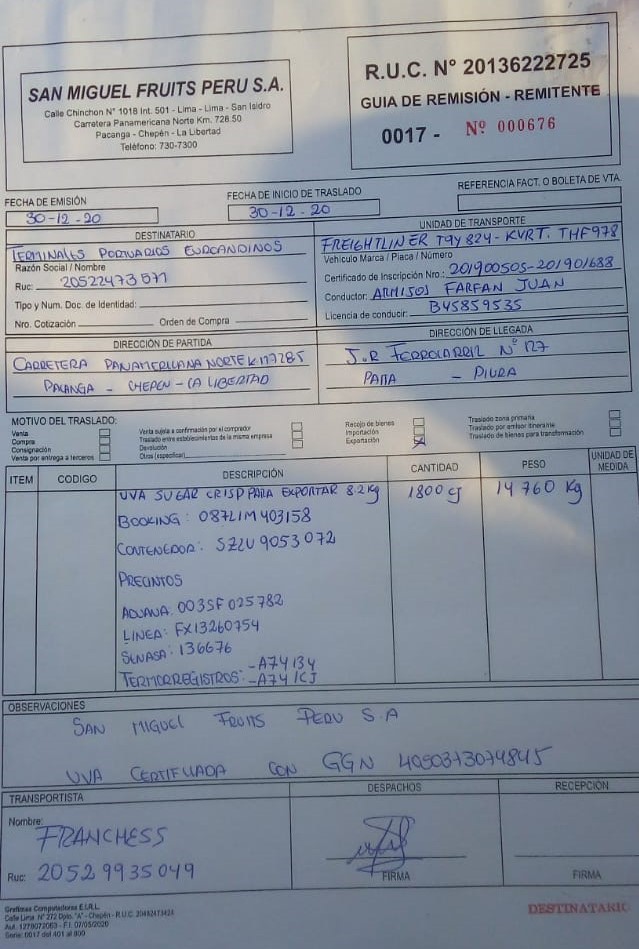 SAN MIGUEL FRUITS PERU S.A.
Calle Chinchon N° 1018 Int. 501 - Lima - Lima - San Isidro
Carretera Panamericana Norte Km. 728.50
Pacanga - Chepén - La Libertad
Teléfono: 730-7300
R.U.C. N° 20136222725
GUIA DE REMISIÓN - REMITENTE
0017 - Nº 000676
FECHA DE EMISIÓN
30-12-20
FECHA DE INICIO DE TRASLADO
30-12-20
REFERENCIA FACT. O BOLETA DE VTA.
DESTINATARIO
TERMINALES PORTUARIOS EUROANDINOS
Razón Social / Nombre
Ruc: 20522473571
Tipo y Num. Doc. de Identidad:
Nro. Cotización Orden de Compra
UNIDAD DE TRANSPORTE
FREIGHTLINER T9Y824 - KVRT. THF978
Vehiculo Marca / Placa / Número
Certificado de Inscripción Nro.: 201900505-201901688
Conductor: ARMIJOS FARFAN JUAN
Licencia de conducir: B45859535
DIRECCIÓN DE PARTIDA
CARRETERA PANAMERICANA NORTE
PACANGA - CHEPEN - LA LIBERTAD
DIRECCIÓN DE LLEGADA
J.R FERROCARRIL Nº 127
PAITA - PIURA
MOTIVO DEL TRASLADO:
Venta
Compra
Consignación
Venta por entrega a terceros
Venta sujeta a confirmación por el comprador
Traslado entre establecimientos de la misma empresa
Devolución
Otros (especificar)
Recojo de bienes
Importación
Exportación
Traslado zona primaria
Traslado por emisor itinerante
Traslado de bienes para transformación
ITEM CODIGO DESCRIPCIÓN CANTIDAD PESO UNIDAD DE MEDIDA
UVA SUGAR CRISP PARA EXPORTAR 8.2 Kg 1800 CJ 14 760 Kg
BOOKING: 087LIM403158
CONTENEDOR: SZLU 9053072
PRECINTOS
ADUANA: 003SF025782
LINEA: FX13260754
SENASA: 136676
TERMORREGISTROS:
OBSERVACIONES
SAN MIGUEL FRUITS PERU S.A
UVA CERTIFICADA CON GGN 4050373074845
TRANSPORTISTA
Nombre: FRANCHESS
Ruc: 20529935049
DESPACHOS
FIRMA
RECEPCIÓN
FIRMA
Grafimas Computadoras E.I.R.L.
Calle Lima N° 272 Dpto. "A" - Chepén - R.U.C. 20482473424
Aut. 1279072063 - F.I. 07/05/2020
Serie: 0017 del 401 al 900
DESTINATARIO